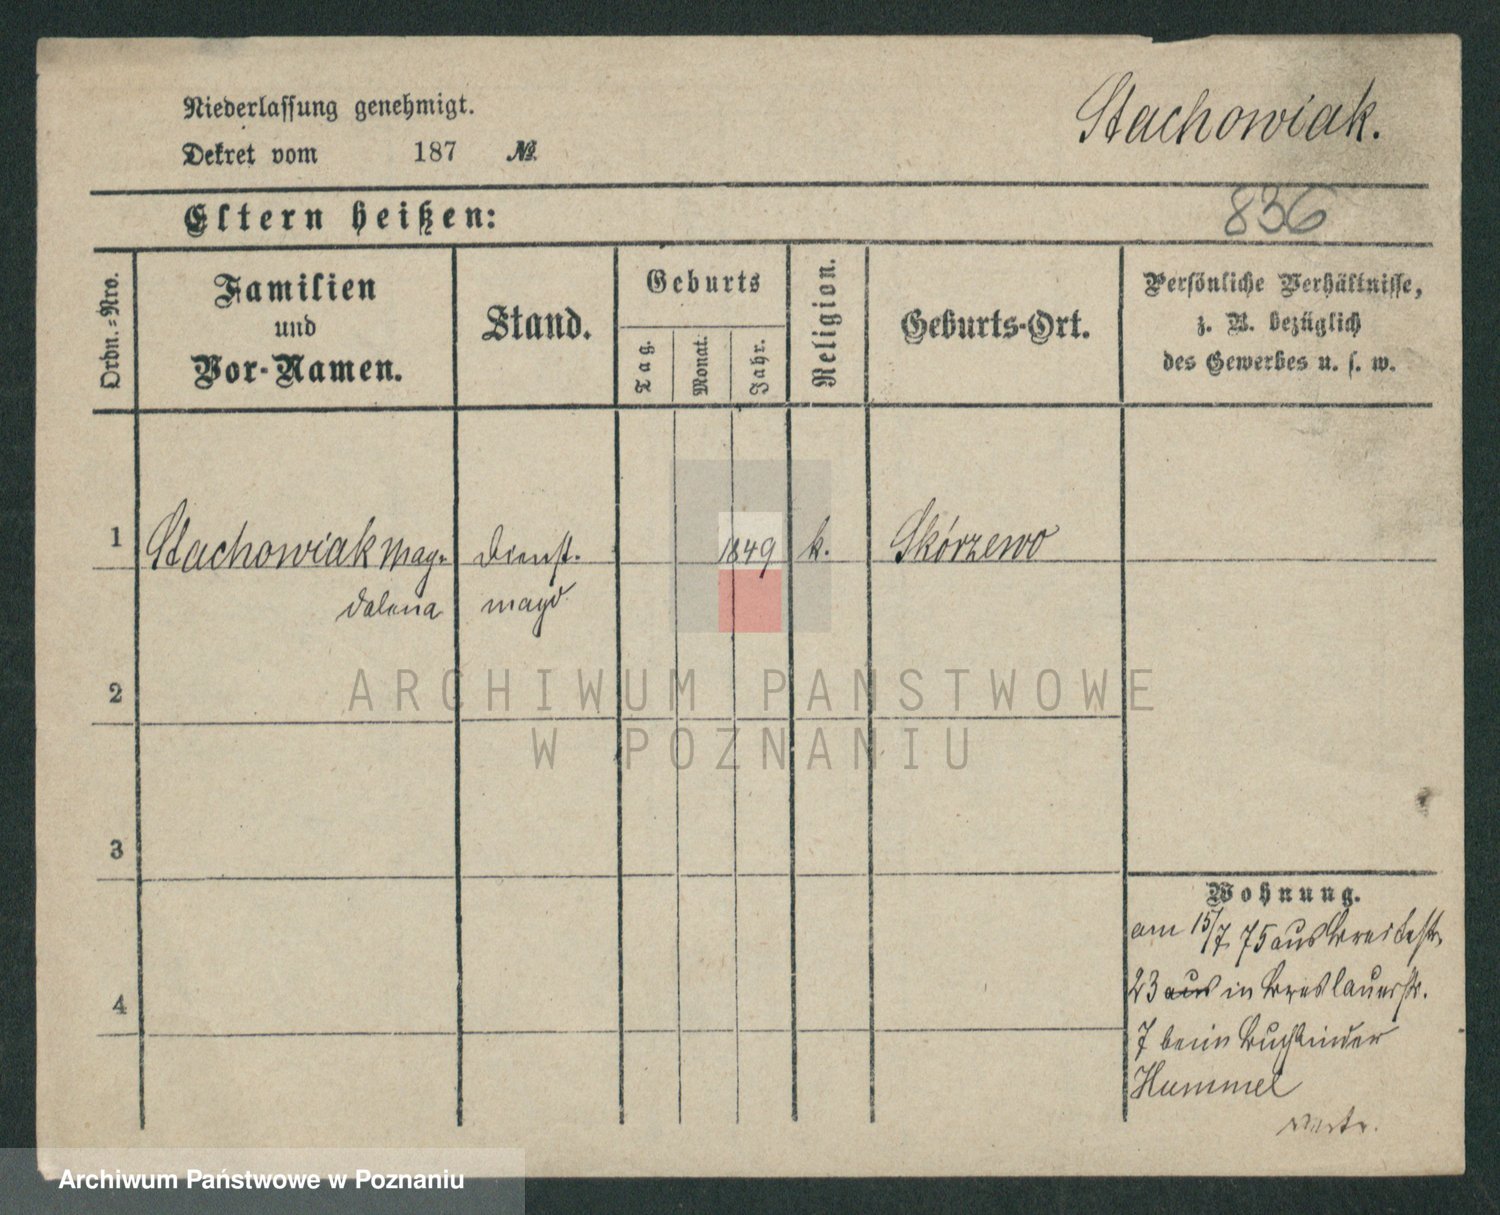 Niederlassung genehmigt.
Dekret vom 187 №.
Stachowiak.
836
Eltern heißen:
Ordn.-Nro.
Familien
und
Vor-Namen.
Stand.
Geburts
Tag.
Monat.
Jahr.
Religion.
Geburts-Ort.
Persönliche Verhältnisse,
z. B. bezüglich
des Gewerbes u. s. w.
1 Stachowiak Mag- Dienst- 1849 k. Skórzewo
dalena magd
2
3
4
Wohnung.
am 15/7 75 aus Breitestr.
23 aus in Breslauerstr.
7 beim Buchbinder
Hummel
ARCHIWUM PAŃSTWOWE
W POZNANIU
Archiwum Państwowe w Poznaniu